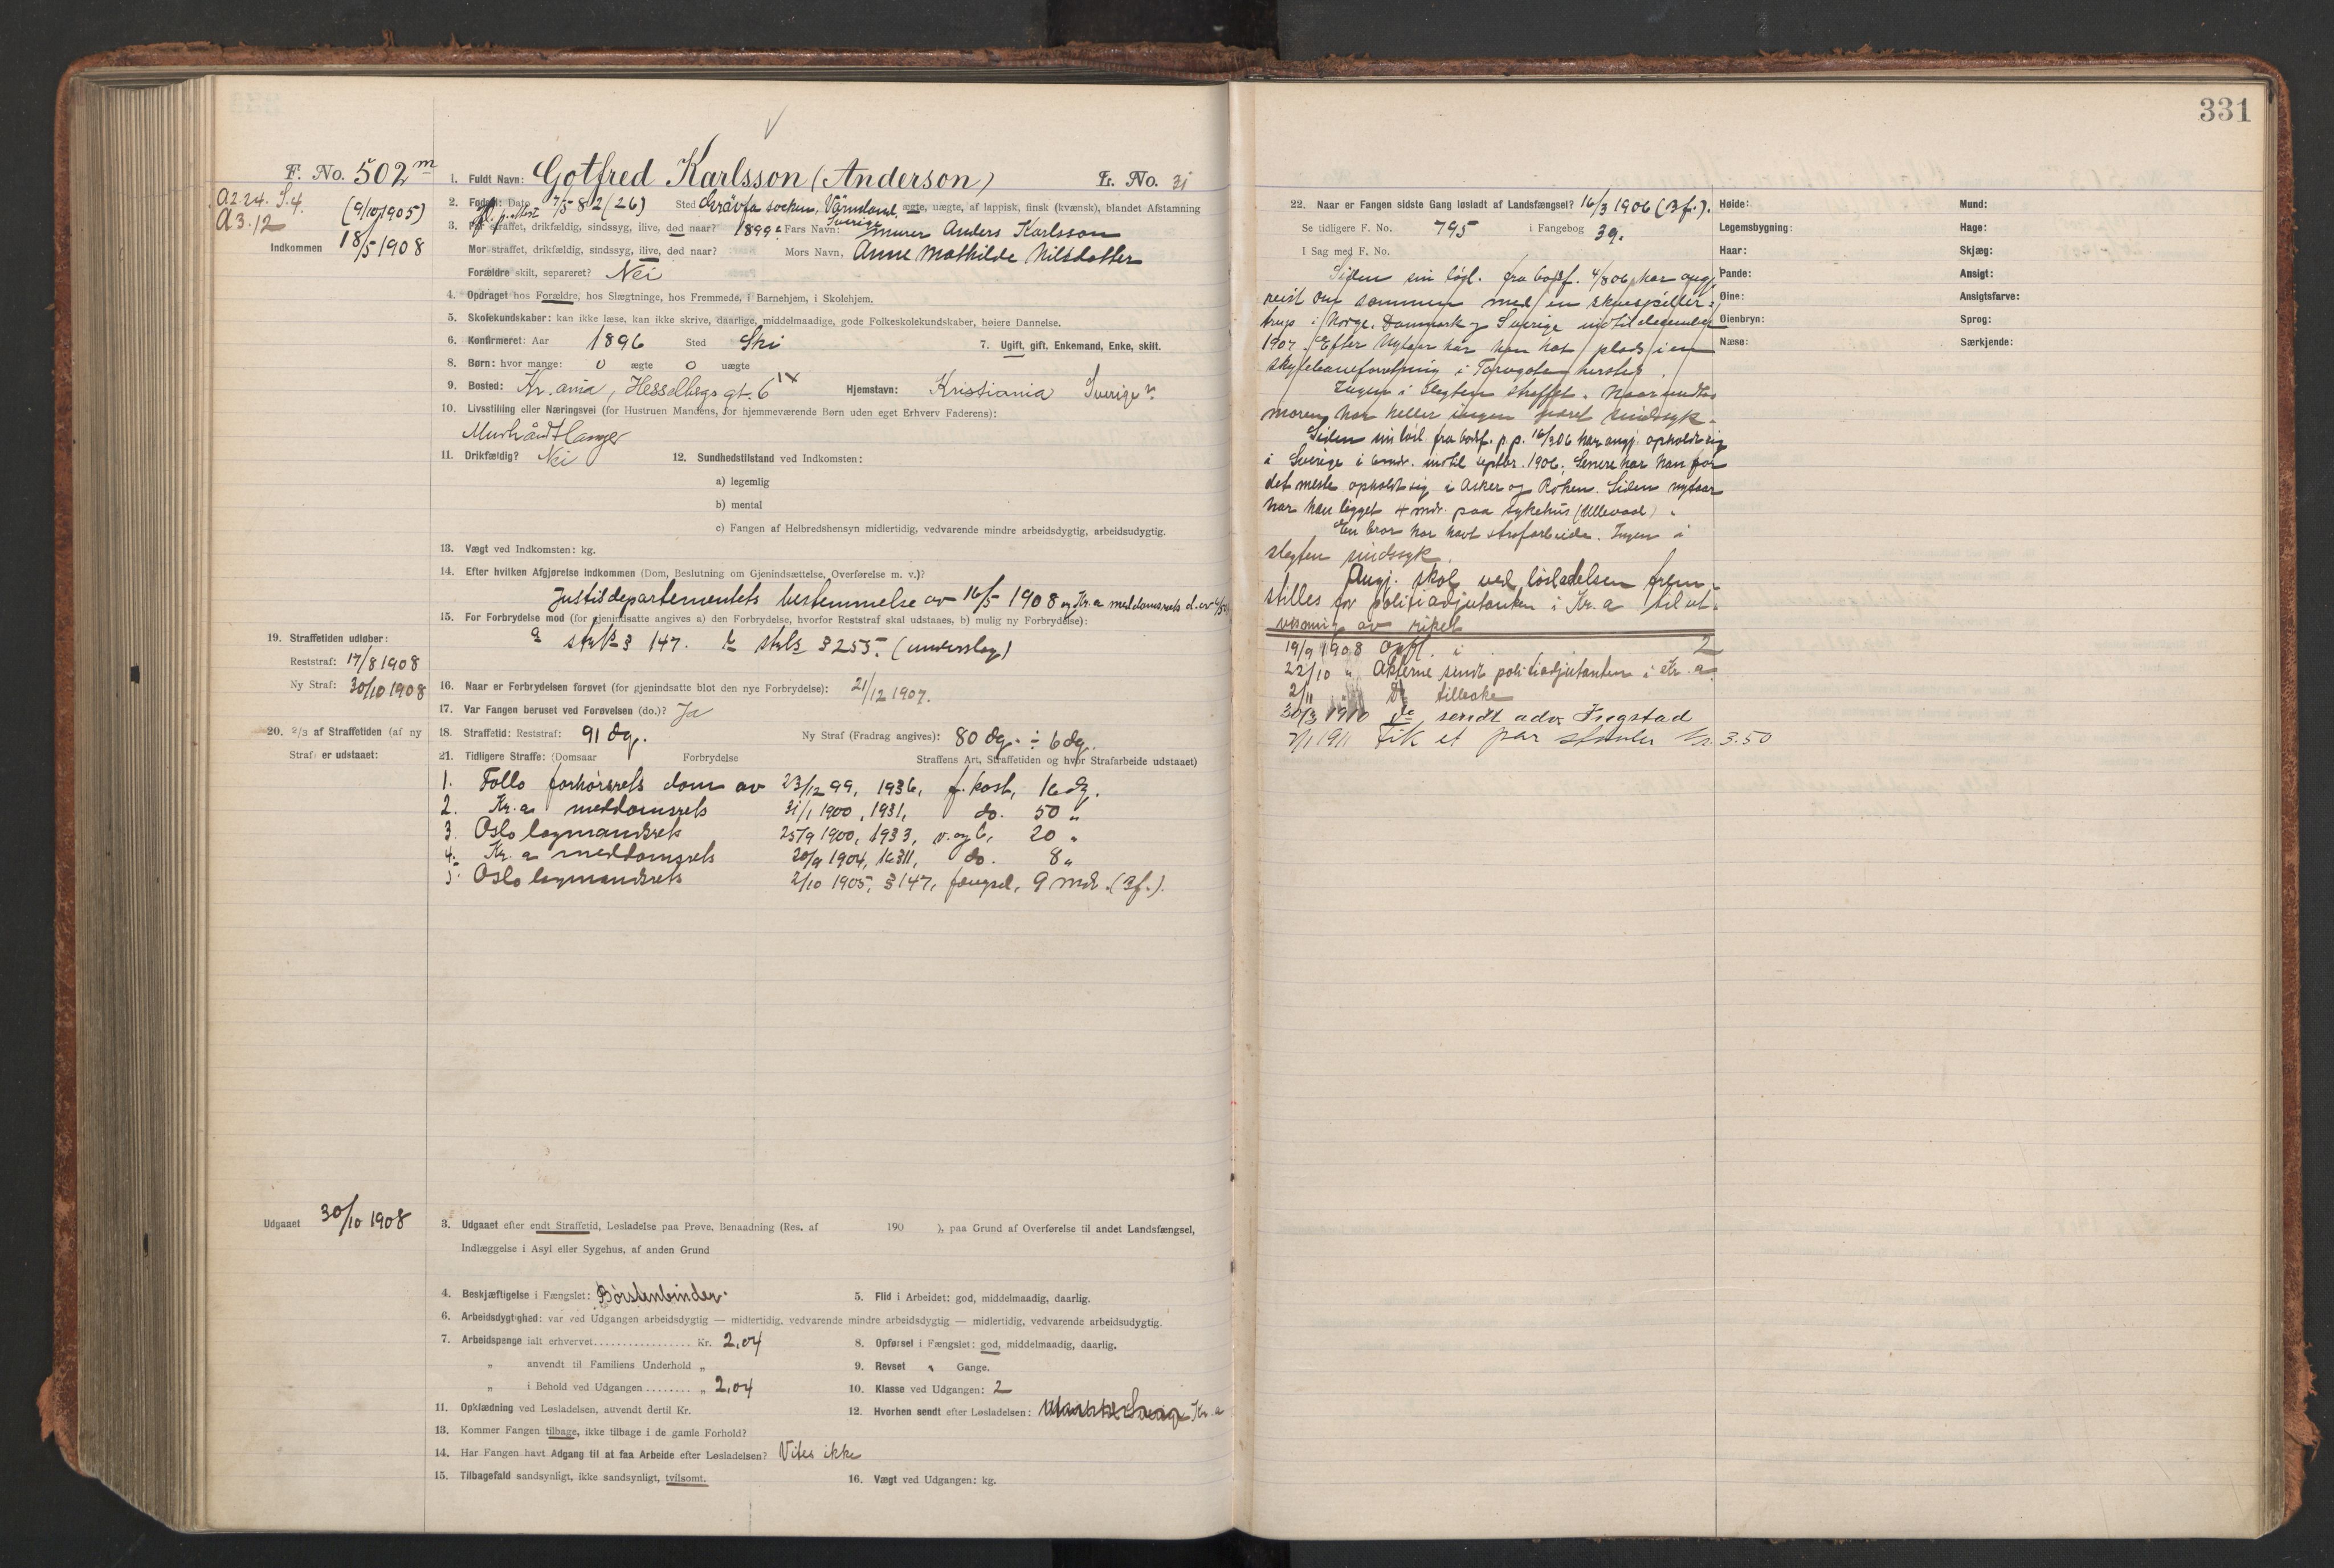 331
F. No. 502 m
A 2.24. S. 4. (9/10 1905)
A 3.12
Indkommen 18/5 1908
1. Fuldt Navn: Gotfred Karlsson (Anderson) L. No. 31
2. Født: Dato 7/5 82 (26) Sted Grävfa socken, Värmland, Sverige ægte, uægte, af lappisk, finsk (kvænsk), blandet Afstamning
3. Far straffet, drikfældig, sindssyg, ilive, død naar? 1899. Fars Navn: murer Anders Karlsson
Mor straffet, drikfældig, sindssyg, ilive, død naar? Mors Navn, Anne Mathilde Nilsdatter
Forældre skilt, separeret? Nei
4. Opdraget hos Forældre, hos Slægtninge, hos Fremmede, i Barnehjem, i Skolehjem.
5. Skolekundskaber: kan ikke læse, kan ikke skrive, daarlige, middelmaadige, gode Folkeskolekundskaber, høiere Dannelse.
6. Konfirmeret: Aar 1896 Sted Ski 7. Ugift, gift, Enkemand, Enke, skilt.
8. Børn: hvor mange: 0 ægte 0 uægte
9. Bosted: Kr.ania, Hesselbergs gt. 6 IV Hjemstavn: Kristiania Sverige
10. Livsstilling eller Næringsvei (for Hustruen Mandens, for hjemmeværende Børn uden eget Erhverv Faderens):
Murhåndtlanger
11. Drikfældig? Nei 12. Sundhedstilstand ved Indkomsten:
a) legemlig
b) mental
c) Fangen af Helbredshensyn midlertidig, vedvarende mindre arbeidsdygtig, arbeidsudygtig.
13. Vægt ved Indkomsten: kg.
14. Efter hvilken Afgjørelse indkommen (Dom, Beslutning om Gjenindsættelse, Overførelse m. v.)?
Justisdepartementets bestemmelse av 16/5 1908 og Kr.a meddomsrets d. av
15. For Forbrydelse mod (for gjenindsatte angives a) den Forbrydelse, hvorfor Reststraf skal udstaaes, b) mulig ny Forbrydelse):
a strl § 147. b strls § 255. (underslag)
19. Straffetiden udløber:
Reststraf: 17/8 1908
Ny Straf: 30/10 1908
16. Naar er Forbrydelsen forøvet (for gjenindsatte blot den nye Forbrydelse): 21/12 1907.
17. Var Fangen beruset ved Forøvelsen (do.)? Ja
20. 2/3 af Straffetiden (af ny
Straf) er udstaaet:
18. Straffetid: Reststraf: 91 dg. Ny Straf (Fradrag angives): 80 dg. ÷ 6 dg.
21. Tidligere Straffe: (Domsaar Forbrydelse Straffens Art, Straffetiden og hvor Strafarbeide udstaaet)
1. Follo forhørsrets dom av 23/12 99, 1936, f. kost, 16 dg.
2. Kr.a meddomsrets 31/1 1900, 1931, do. 50 "
3. Oslo lagmandsrets 25/9 1900, 1933, v. og b, 20 "
4. Kr.a meddomsrets 20/9 1904, 16311, do. 8 "
5. Oslo lagmandsrets 2/10 1905, § 147, fængsel, 9 mdr. (Bf.).
Udgaaet 30/10 1908
3. Udgaaet efter endt Straffetid, Løsladelse paa Prøve, Benaadning (Res. af 190 ), paa Grund af Overførelse til andet Landsfængsel,
Indlæggelse i Asyl eller Sygehus, af anden Grund
4. Beskjæftigelse i Fængslet: Børstenbinder. 5. Flid i Arbeidet: god, middelmaadig, daarlig.
6. Arbeidsdygtighed: var ved Udgangen arbeidsdygtig — midlertidig, vedvarende mindre arbeidsdygtig — midlertidig, vedvarende arbeidsudygtig.
7. Arbeidspenge ialt erhvervet Kr. 2,04 8. Opførsel i Fængslet: god, middelmaadig, daarlig.
" anvendt til Familiens Underhold " 9. Revset " Gange.
" i Behold ved Udgangen " 2,04 10. Klasse ved Udgangen: 2
11. Opklædning ved Løsladelsen, anvendt dertil Kr. 12. Hvorhen sendt efter Løsladelsen: Kr.a
13. Kommer Fangen tilbage, ikke tilbage i de gamle Forhold?
14. Har Fangen havt Adgang til at faa Arbeide efter Løsladelsen? Vites ikke
15. Tilbagefald sandsynligt, ikke sandsynligt, tvilsomt. 16. Vægt ved Udgangen: kg.
22. Naar er Fangen sidste Gang løsladt af Landsfængsel? 16/3 1906 (Bf.).
Se tidligere F. No. 795 i Fangebog 39.
I Sag med F. No.
Siden sin løsl. fra bodsf. har angj.
reist om sommeren med en skuespiller-
trup i Norge, Danmark og Sverige indtil
1907. Efter Nytaar har han hat plads i en
skydebaneforretning i Torvgaten hersteds.
Ingen i slegten straffet. Naar undtas
moren har heller ingen været sindssyk.
Siden sin løsl. fra bodsf. p. p. 16/3 06 har angj. opholdt sig
i Sverige i 6 mdr. indtil septbr. 1906. Senere har han for
det meste opholdt sig i Asker og Røken. Siden nytaar
har han ligget 4 mdr. paa sykehus (Ullevaal).
En bror har havt strafarbeide. Ingen i
slegten sindssyk.
Angj. skal ved løsladelsen frem-
stilles for politiadjutanten i Kr.a til ut-
visning av riket
19/9 1908 opfl. i 2
22/10 " Akterne sendt politiadjutanten i Kr.a.
2/11 " D tilbake
30/3 1910 do sendt adv. Ingstad
2/1 1911 Fik et par støvler kr. 3.50
Høide: Mund:
Legemsbygning: Hage:
Haar: Skjæg:
Pande: Ansigt:
Øine: Ansigtsfarve:
Øienbryn: Sprog:
Næse: Særkjende: